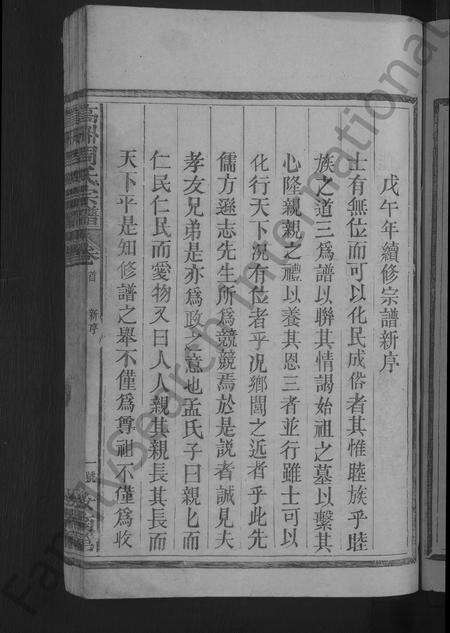 戊午年續修宗譜新序
士有無位而可以化民成俗者其惟睦族乎睦
族之道三為譜以聯其情謁始祖之墓以繫其
心隆親親之禮以養其恩三者並行雖士可以
化行天下况有位者乎况鄉閭之近者乎此先
儒方遜志先生所為兢兢焉於是說者誠見夫
孝友兄弟是亦為政之意也孟氏子曰親匕而
仁民仁民而愛物又曰人人親其親長其長而
天下平是知修譜之舉不僅為尊祖不僅為收
周氏宗譜
卷首
新序
一號
FamilySearch International